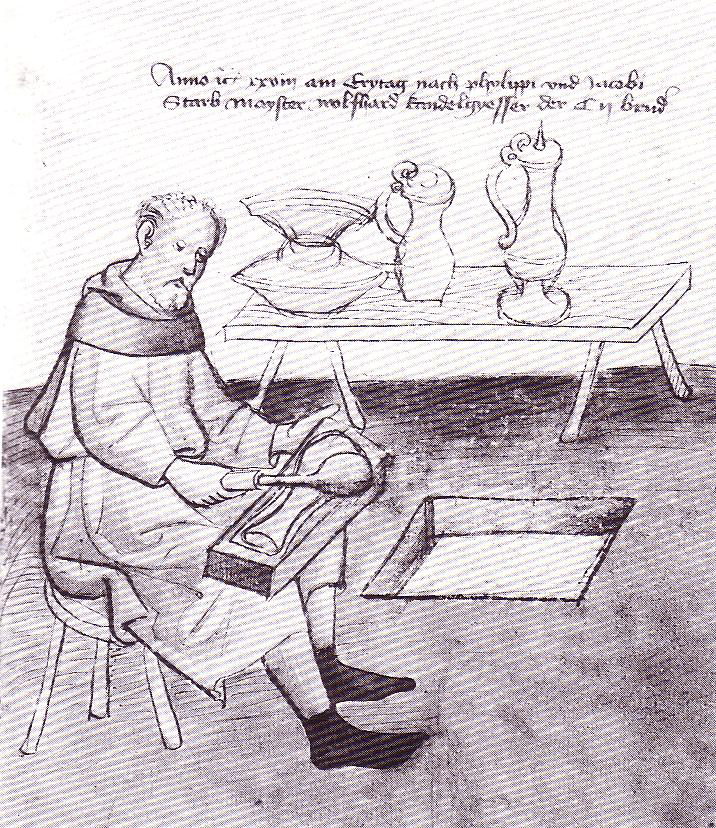 Anno xxviii am Erytag nach pholippi vnd Jacobi
Starb Mayster wolfhard kandelgyesser der C ii brud